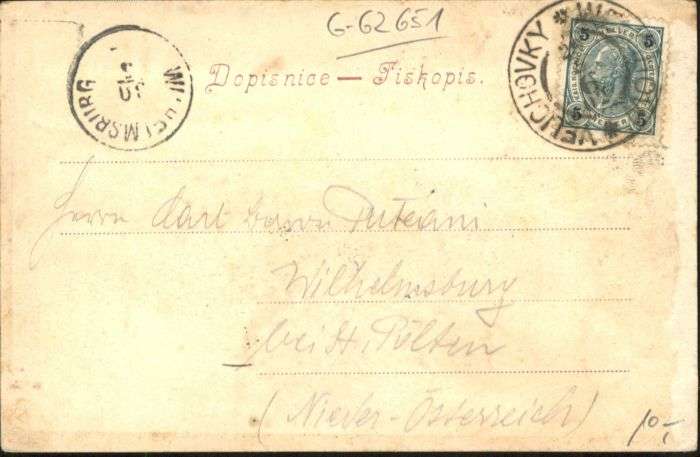 G-62651
Dopisnice — Tiskopis.
WILHELMSBURG
VELICHOVKY
5 5
5 5
Herrn Carl Baron Puteani
Wilhelmsburg
bei St. Pölten
(Nieder-Österreich)
10,-